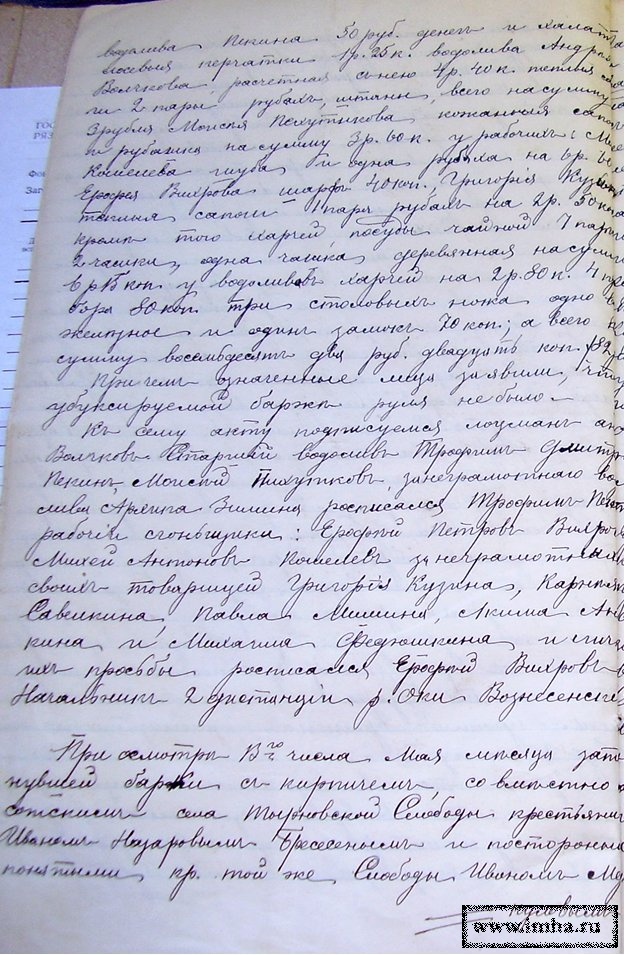 водолива Пекина 50 руб. денег и халат
лосевыя перчатки 1р. 25к. водолива Андрея
Волчкова, расчетная съ нею 4р. 40к. теплыя сапо
ги 2 пары рубахъ, штаны, всего на сумму
3 рубля Моисея Пехутикова кожанная сапоги
и рубашка на сумму 3р. 60к. у рабочихъ: Михея
Кошелева шуба и одна рубаха на 6р.
Ерофея Вихрова шарфъ 40 коп., Григорія Кузина
сапоги 1 пара рубахъ на 2р. 50 коп
кромѣ того харчей, посуды чайной 1 пара
2 чашки, одна чашка деревянная на сумму
у водоливовъ харчей на 2р. 80к. 4
80 коп. три столовыхъ ножа одно
желѣзное и один замокъ 70 коп; а всего на
сумму восемьдесятъ два руб. двадцать коп. /82р
При чемъ означенные лица заявили, что
у буксируемой баржи руля не было –
Къ сему акту подписуемся лоцманъ Анд
Волчковъ Старшій водоливъ Трофимъ Дмитр
Пекинъ, Моисей Пихутковъ, за неграмотнаго во
лива Архипа Зимина росписался Трофимъ Пекин
рабочіи : Ерофей Петровъ Вихровъ
Михей Антоновъ Кошелевъ за неграмотныхъ
своихъ товарищей Григорія Кузина, Карпа
Савелкина, Павла Мишина, Акима Ан
кина и Михаила Федюшкина и личной
ихъ просьбы росписался Ерофей Вихровъ
Начальникъ 2 дистанціи р. Оки Вознесенскій
При осмотрѣ числа Мая мѣсяца зато
нувшей баржи съ кирпичемъ, совмѣстно с
сотскимъ села Тырновской Слободы крестьянин
Иваномъ Назаровымъ и посторонни
понятыми кр. той же Слободы Иваномъ Му
www.imha.ru